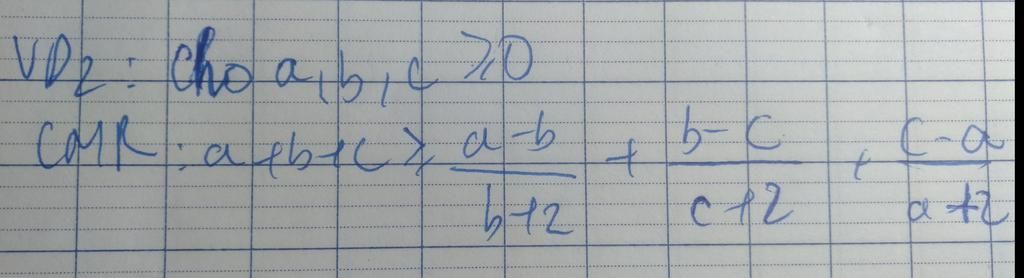 VD2: Cho a, b, c ⩾ 0
CMR: a + b + c ⩾ \frac{a-b}{b+2} + \frac{b-c}{c+2} + \frac{c-a}{a+2}